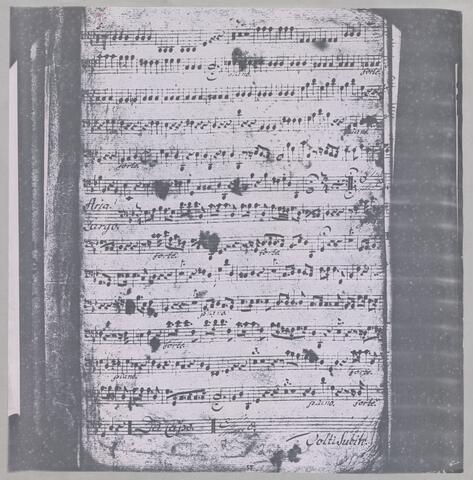 piano. forte.
piano.
forte.
Aria.
Largo.
forte. forte.
piano.
forte.
piano. forte.
piano. forte.
Da Capo
Volti Subito.